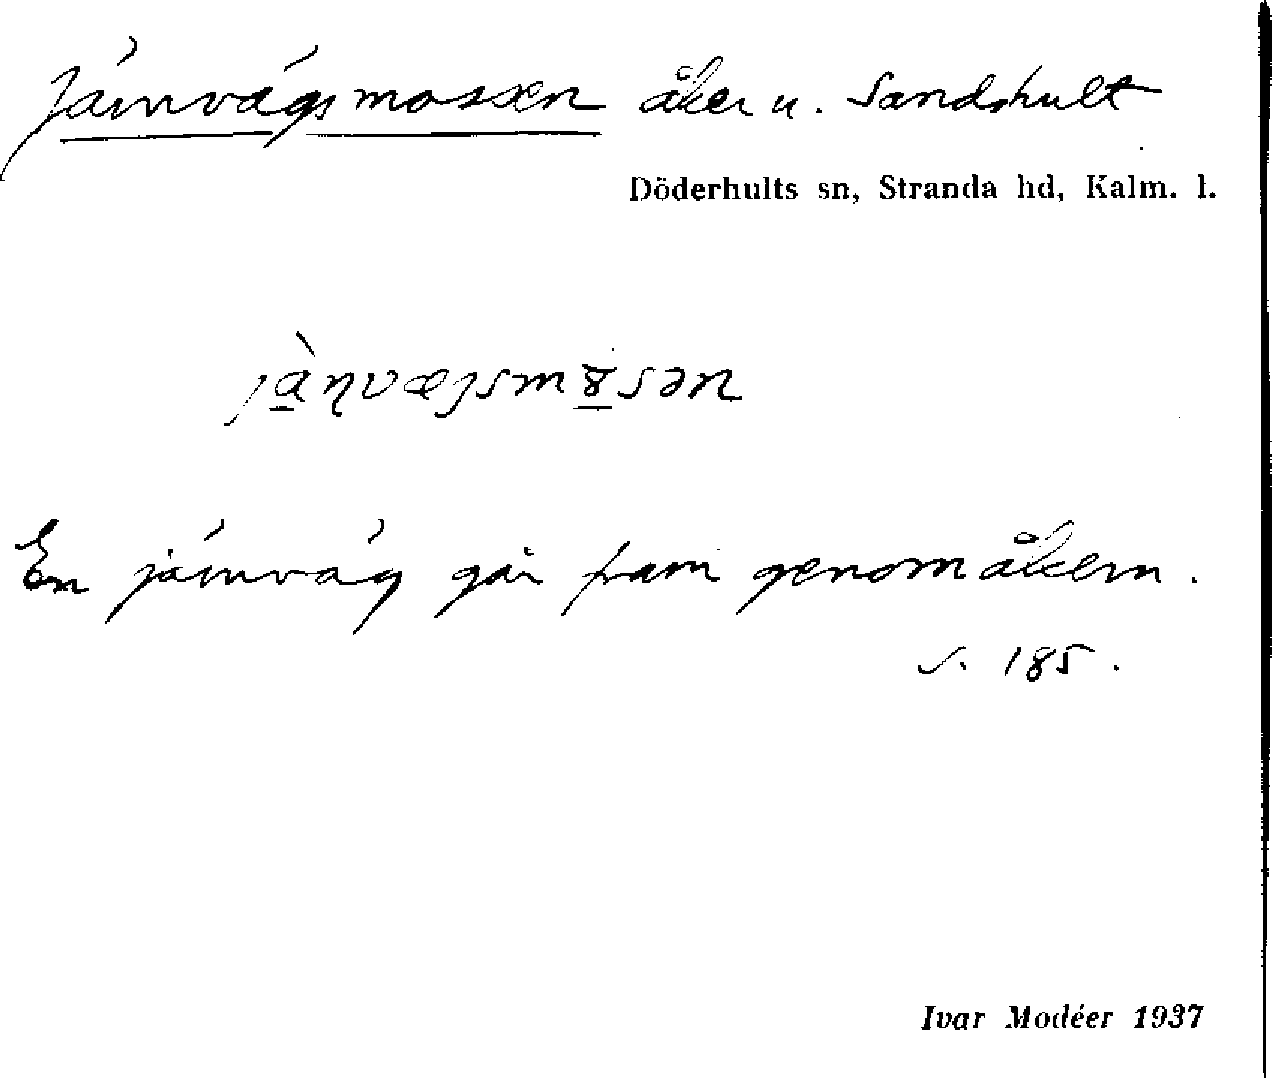 Järnvägsmossen åker u. Sandshult
Döderhults sn, Stranda hd, Kalm. l.
En järnväg går fram genom åkern.
s. 185.
Ivar Modéer 1937